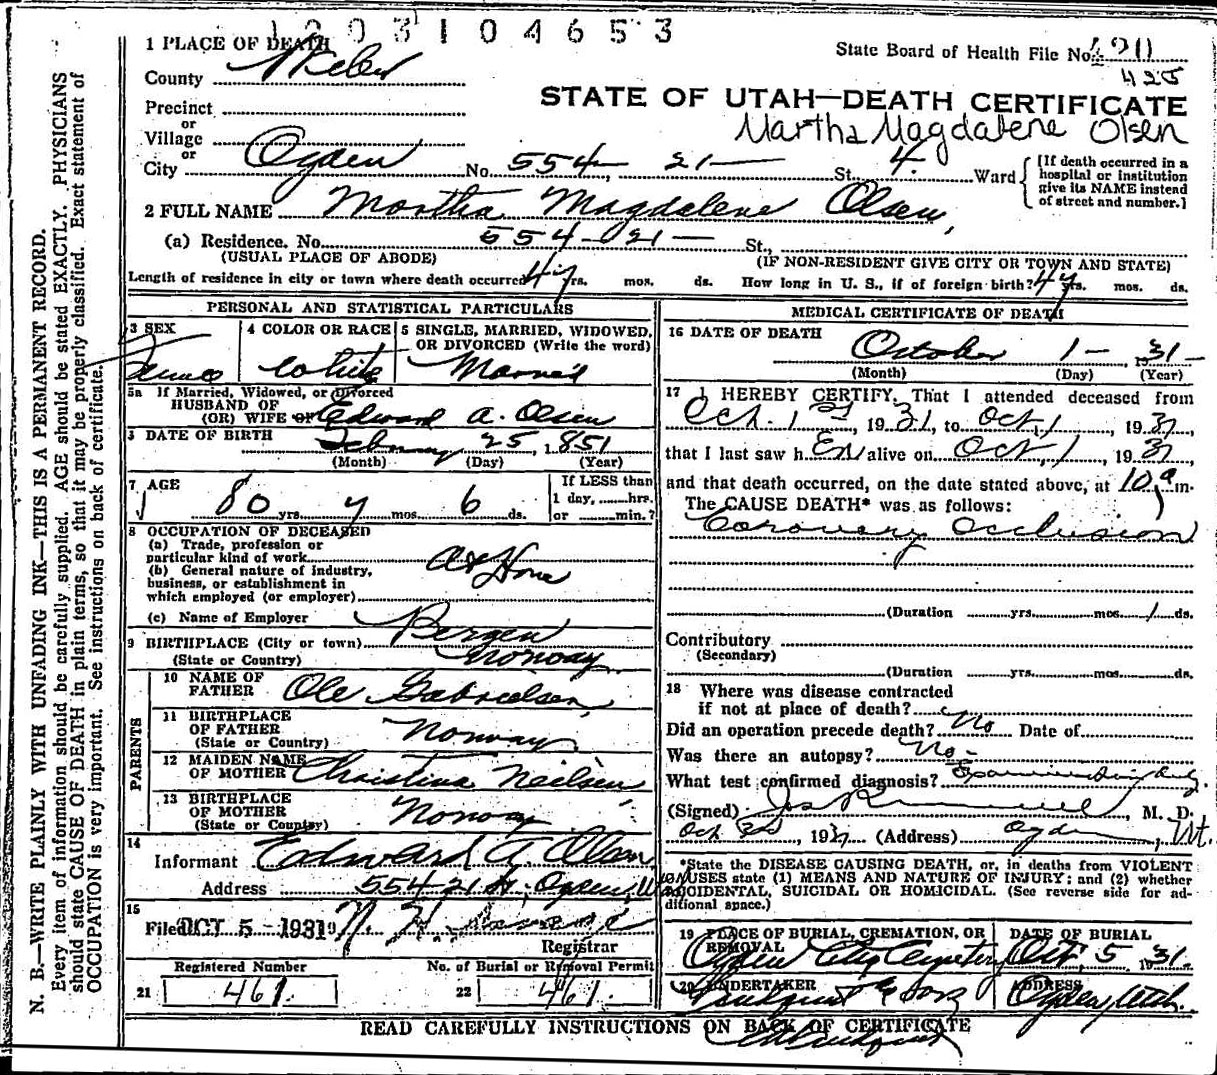 1203104653
1 PLACE OF DEATH
State Board of Health File No. 420
425
County Weber
STATE OF UTAH—DEATH CERTIFICATE
Martha Magdalene Olsen
Precinct
or
Village
or
City Ogden No. 554 - 21 - St. 4. Ward
[If death occurred in a hospital or institution give its NAME instead of street and number.]
2 FULL NAME Martha Magdalene Olsen,
(a) Residence. No. 554 - 21 - St.,
(USUAL PLACE OF ABODE) (IF NON-RESIDENT GIVE CITY OR TOWN AND STATE)
Length of residence in city or town where death occurred 47 yrs. mos. ds. How long in U. S., if of foreign birth? yrs. mos. ds.
PERSONAL AND STATISTICAL PARTICULARS
3 SEX
4 COLOR OR RACE White
5 SINGLE, MARRIED, WIDOWED, OR DIVORCED (Write the word) Married
5a If Married, Widowed, or Divorced
HUSBAND OF
(OR) WIFE OF Edward A. Olsen
DATE OF BIRTH February 25, 1851
(Month) (Day) (Year)
7 AGE 80 yrs. 7 mos. 6 ds.
If LESS than 1 day, hrs. or min.?
8 OCCUPATION OF DECEASED
(a) Trade, profession or particular kind of work At Home
(b) General nature of industry, business, or establishment in which employed (or employer)
(c) Name of Employer
9 BIRTHPLACE (City or town) Bergen
(State or Country) Norway
PARENTS
10 NAME OF FATHER Ole Gabrielsen,
11 BIRTHPLACE OF FATHER (State or Country) Norway
12 MAIDEN NAME OF MOTHER Christina Neilsen,
13 BIRTHPLACE OF MOTHER (State or Country) Norway
14 Informant Edward A. Olsen
Address 554 21 St. Ogden, U
15 Filed OCT 5 - 1931 19
Registrar
Registered Number
21 461.
No. of Burial or Removal Permit
22 461.
MEDICAL CERTIFICATE OF DEATH
16 DATE OF DEATH October 1 - 1931 -
(Month) (Day) (Year)
17 I HEREBY CERTIFY, That I attended deceased from
Oct. 1st, 1931, to Oct, 1, 1931,
that I last saw h er alive on Oct, 1, 1931,
and that death occurred, on the date stated above, at 10 a m.
The CAUSE DEATH* was as follows:
Coronary Occlusion
(Duration yrs. mos. 1 ds.
Contributory
(Secondary)
(Duration yrs. mos. ds.
18 Where was disease contracted
if not at place of death?
Did an operation precede death? No Date of
Was there an autopsy? No -
What test confirmed diagnosis?
(Signed) , M. D.
Oct 3rd, 1931 (Address) Ogden, Ut.
*State the DISEASE CAUSING DEATH, or, in deaths from VIOLENT
CAUSES state (1) MEANS AND NATURE OF INJURY; and (2) whether
ACCIDENTAL, SUICIDAL OR HOMICIDAL. (See reverse side for ad-
ditional space.)
19 PLACE OF BURIAL, CREMATION, OR REMOVAL Ogden City Cemetery
DATE OF BURIAL Oct, 5 1931.
20 UNDERTAKER Lindquist & Sons
ADDRESS Ogden, Utah.
READ CAREFULLY INSTRUCTIONS ON BACK OF CERTIFICATE
N. B.—WRITE PLAINLY WITH UNFADING INK—THIS IS A PERMANENT RECORD.
Every item of information should be carefully supplied. AGE should be stated EXACTLY. PHYSICIANS
should state CAUSE OF DEATH in plain terms, so that it may be properly classified. Exact statement of
OCCUPATION is very important. See instructions on back of certificate.